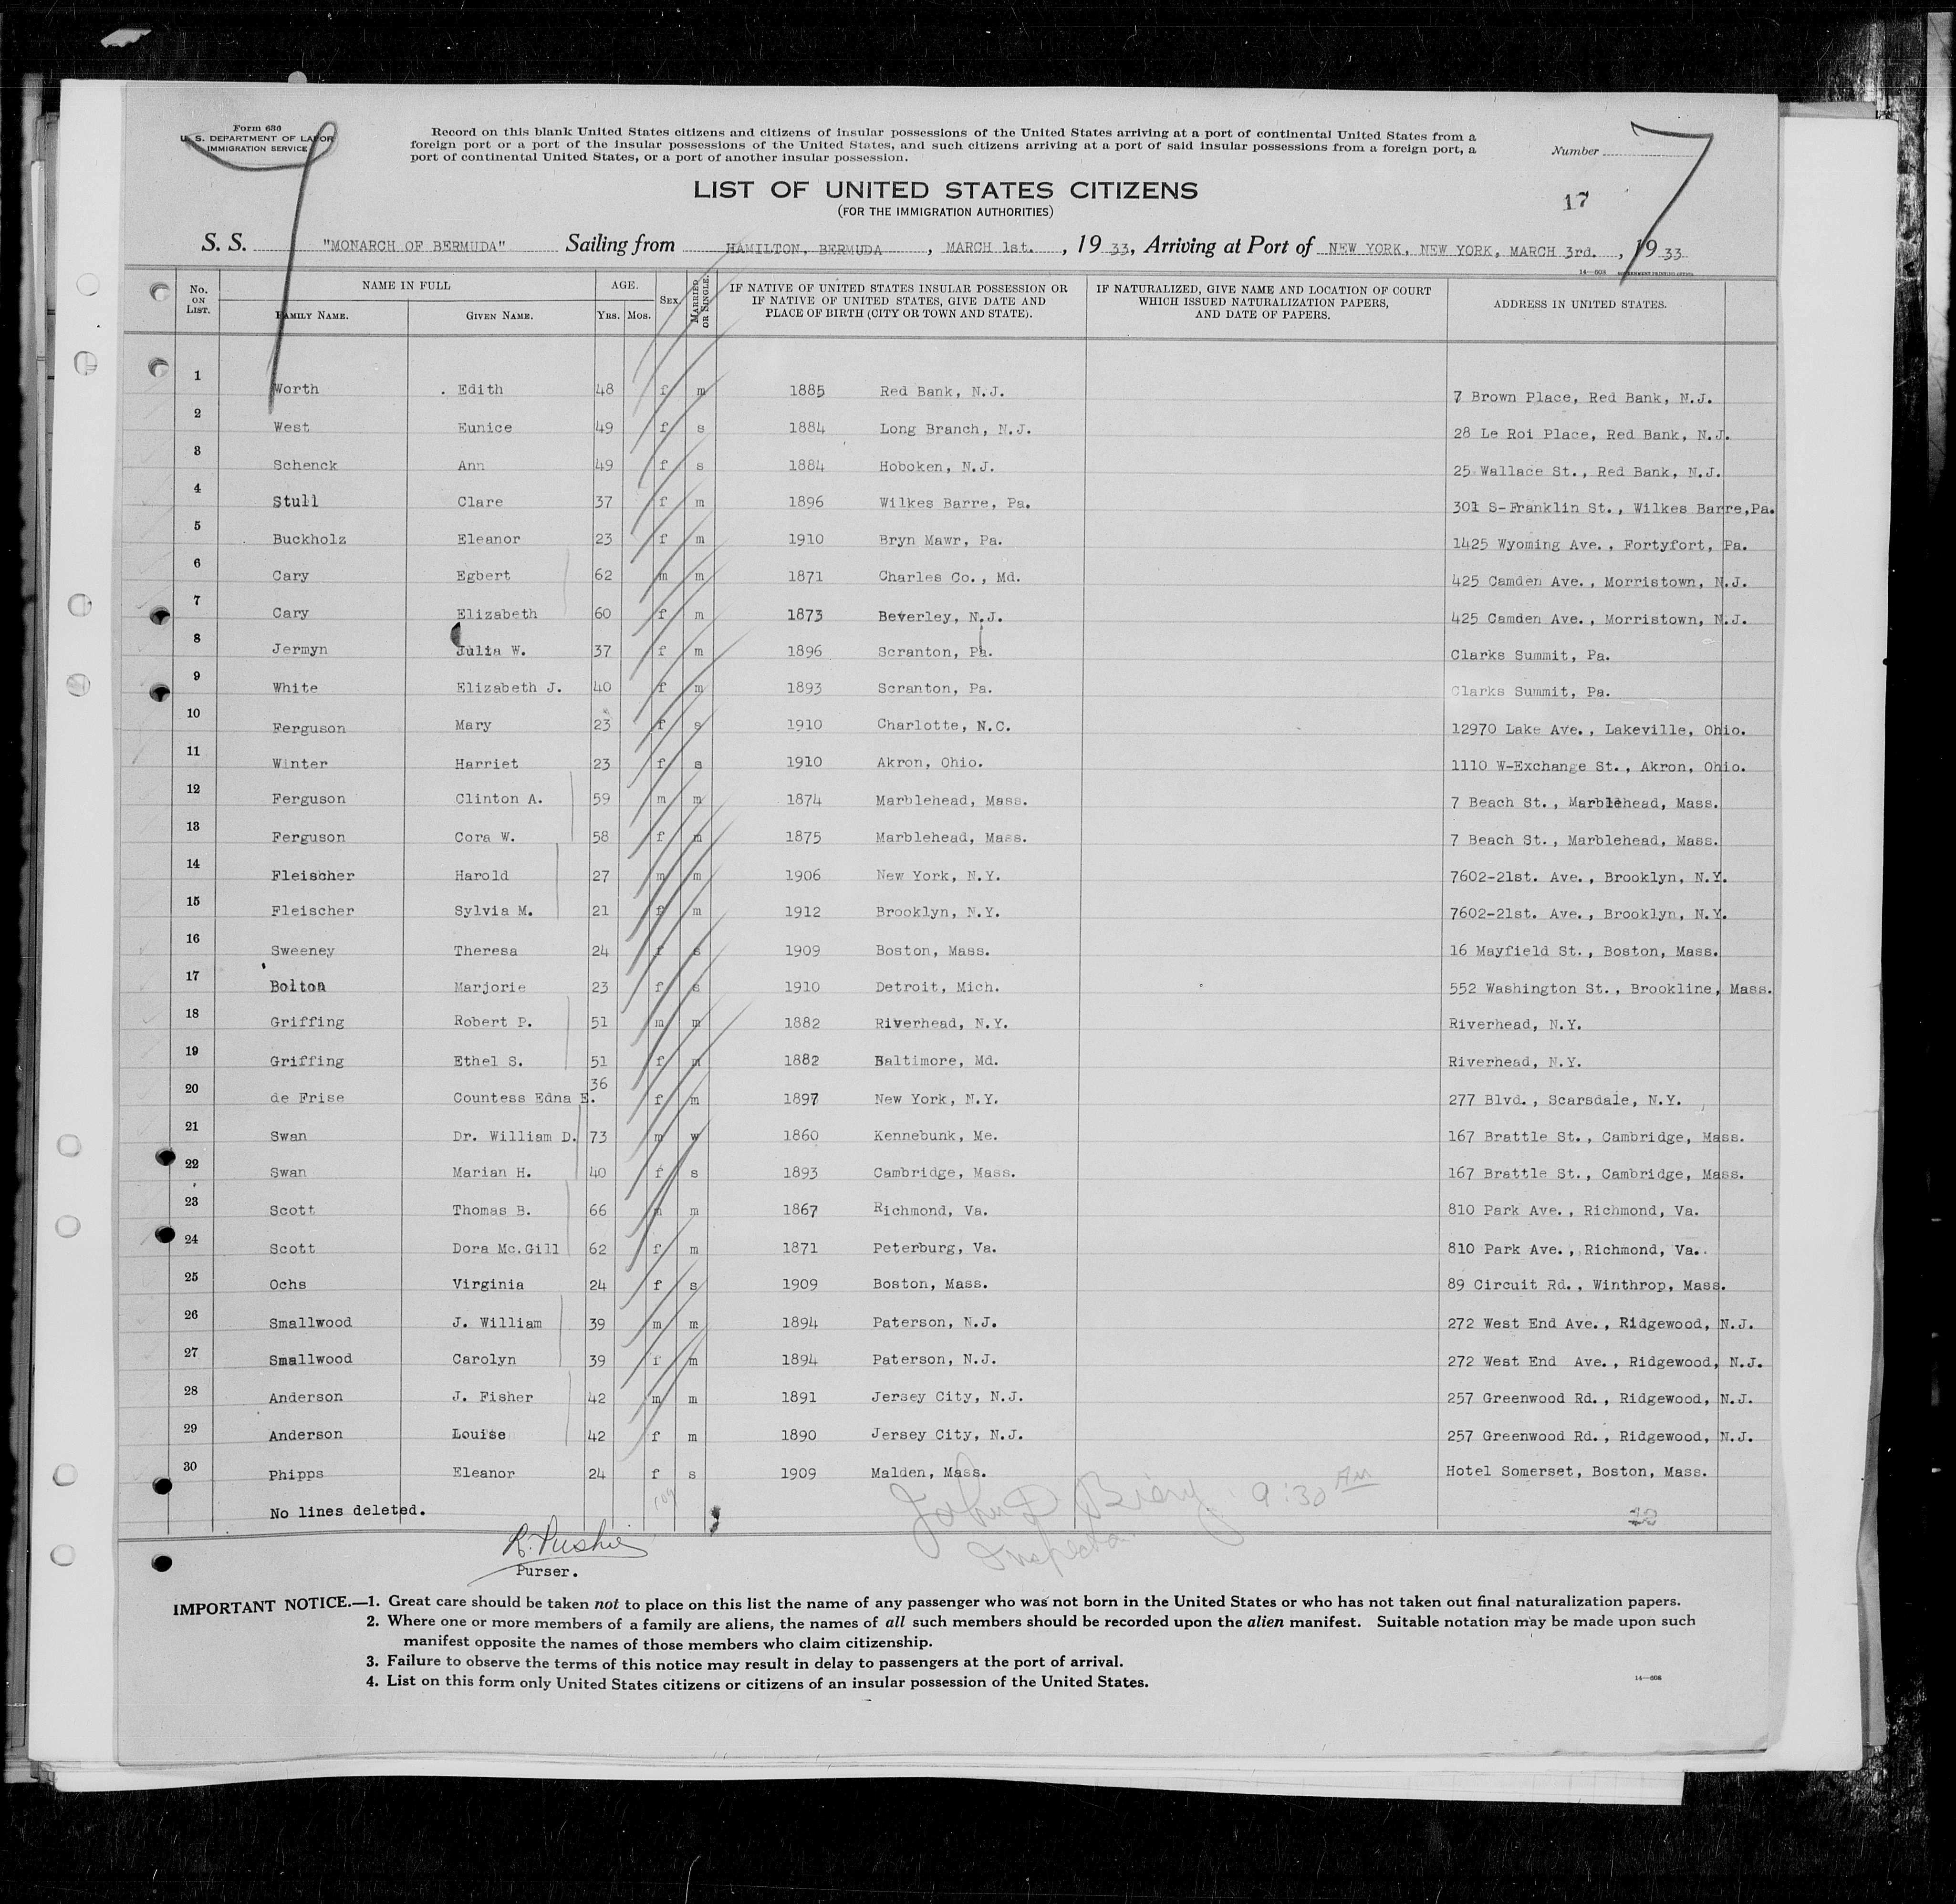 Form 630
U. S. DEPARTMENT OF LABOR
IMMIGRATION SERVICE
Record on this blank United States citizens and citizens of insular possessions of the United States arriving at a port of continental United States from a
foreign port or a port of the insular possessions of the United States, and such citizens arriving at a port of said insular possessions from a foreign port, a
port of continental United States, or a port of another insular possession.
Number
LIST OF UNITED STATES CITIZENS
(FOR THE IMMIGRATION AUTHORITIES)
17
S. S. "MONARCH OF BERMUDA" Sailing from HAMILTON, BERMUDA, MARCH 1st., 1933, Arriving at Port of NEW YORK, NEW YORK, MARCH 3rd., 1933
14—608 GOVERNMENT PRINTING OFFICE
No. ON LIST. NAME IN FULL FAMILY NAME. GIVEN NAME. AGE. YRS. MOS. SEX MARRIED OR SINGLE. IF NATIVE OF UNITED STATES INSULAR POSSESSION OR IF NATIVE OF UNITED STATES, GIVE DATE AND PLACE OF BIRTH (CITY OR TOWN AND STATE). IF NATURALIZED, GIVE NAME AND LOCATION OF COURT WHICH ISSUED NATURALIZATION PAPERS, AND DATE OF PAPERS. ADDRESS IN UNITED STATES.
1 Worth Edith 48 f m 1885 Red Bank, N.J. 7 Brown Place, Red Bank, N.J.
2 West Eunice 49 f s 1884 Long Branch, N.J. 28 Le Roi Place, Red Bank, N.J.
3 Schenck Ann 49 f s 1884 Hoboken, N.J. 25 Wallace St., Red Bank, N.J.
4 Stull Clare 37 f m 1896 Wilkes Barre, Pa. 301 S-Franklin St., Wilkes Barre,Pa.
5 Buckholz Eleanor 23 f m 1910 Bryn Mawr, Pa. 1425 Wyoming Ave., Fortyfort, Pa.
6 Cary Egbert 62 m m 1871 Charles Co., Md. 425 Camden Ave., Morristown, N.J.
7 Cary Elizabeth 60 f m 1873 Beverley, N.J. 425 Camden Ave., Morristown, N.J.
8 Jermyn Julia W. 37 f m 1896 Scranton, Pa. Clarks Summit, Pa.
9 White Elizabeth J. 40 f m 1893 Scranton, Pa. Clarks Summit, Pa.
10 Ferguson Mary 23 f s 1910 Charlotte, N.C. 12970 Lake Ave., Lakeville, Ohio.
11 Winter Harriet 23 f s 1910 Akron, Ohio. 1110 W-Exchange St., Akron, Ohio.
12 Ferguson Clinton A. 59 m m 1874 Marblehead, Mass. 7 Beach St., Marblehead, Mass.
13 Ferguson Cora W. 58 f m 1875 Marblehead, Mass. 7 Beach St., Marblehead, Mass.
14 Fleischer Harold 27 m m 1906 New York, N.Y. 7602-21st. Ave., Brooklyn, N.Y.
15 Fleischer Sylvia M. 21 f m 1912 Brooklyn, N.Y. 7602-21st. Ave., Brooklyn, N.Y.
16 Sweeney Theresa 24 f s 1909 Boston, Mass. 16 Mayfield St., Boston, Mass.
17 Bolton Marjorie 23 f s 1910 Detroit, Mich. 552 Washington St., Brookline, Mass.
18 Griffing Robert P. 51 m m 1882 Riverhead, N.Y. Riverhead, N.Y.
19 Griffing Ethel S. 51 f m 1882 Baltimore, Md. Riverhead, N.Y.
20 de Frise Countess Edna E. 36 f m 1897 New York, N.Y. 277 Blvd., Scarsdale, N.Y.
21 Swan Dr. William D. 73 m w 1860 Kennebunk, Me. 167 Brattle St., Cambridge, Mass.
22 Swan Marian H. 40 f s 1893 Cambridge, Mass. 167 Brattle St., Cambridge, Mass.
23 Scott Thomas B. 66 m m 1867 Richmond, Va. 810 Park Ave., Richmond, Va.
24 Scott Dora Mc.Gill 62 f m 1871 Peterburg, Va. 810 Park Ave., Richmond, Va.
25 Ochs Virginia 24 f s 1909 Boston, Mass. 89 Circuit Rd., Winthrop, Mass.
26 Smallwood J. William 39 m m 1894 Paterson, N.J. 272 West End Ave., Ridgewood, N.J.
27 Smallwood Carolyn 39 f m 1894 Paterson, N.J. 272 West End Ave., Ridgewood, N.J.
28 Anderson J. Fisher 42 m m 1891 Jersey City, N.J. 257 Greenwood Rd., Ridgewood, N.J.
29 Anderson Louise 42 f m 1890 Jersey City, N.J. 257 Greenwood Rd., Ridgewood, N.J.
30 Phipps Eleanor 24 f s 1909 Malden, Mass. Hotel Somerset, Boston, Mass.
No lines deleted.
John D 9:30 AM
Inspector
Purser.
IMPORTANT NOTICE.—1. Great care should be taken not to place on this list the name of any passenger who was not born in the United States or who has not taken out final naturalization papers.
2. Where one or more members of a family are aliens, the names of all such members should be recorded upon the alien manifest. Suitable notation may be made upon such
manifest opposite the names of those members who claim citizenship.
3. Failure to observe the terms of this notice may result in delay to passengers at the port of arrival.
4. List on this form only United States citizens or citizens of an insular possession of the United States.
14—608